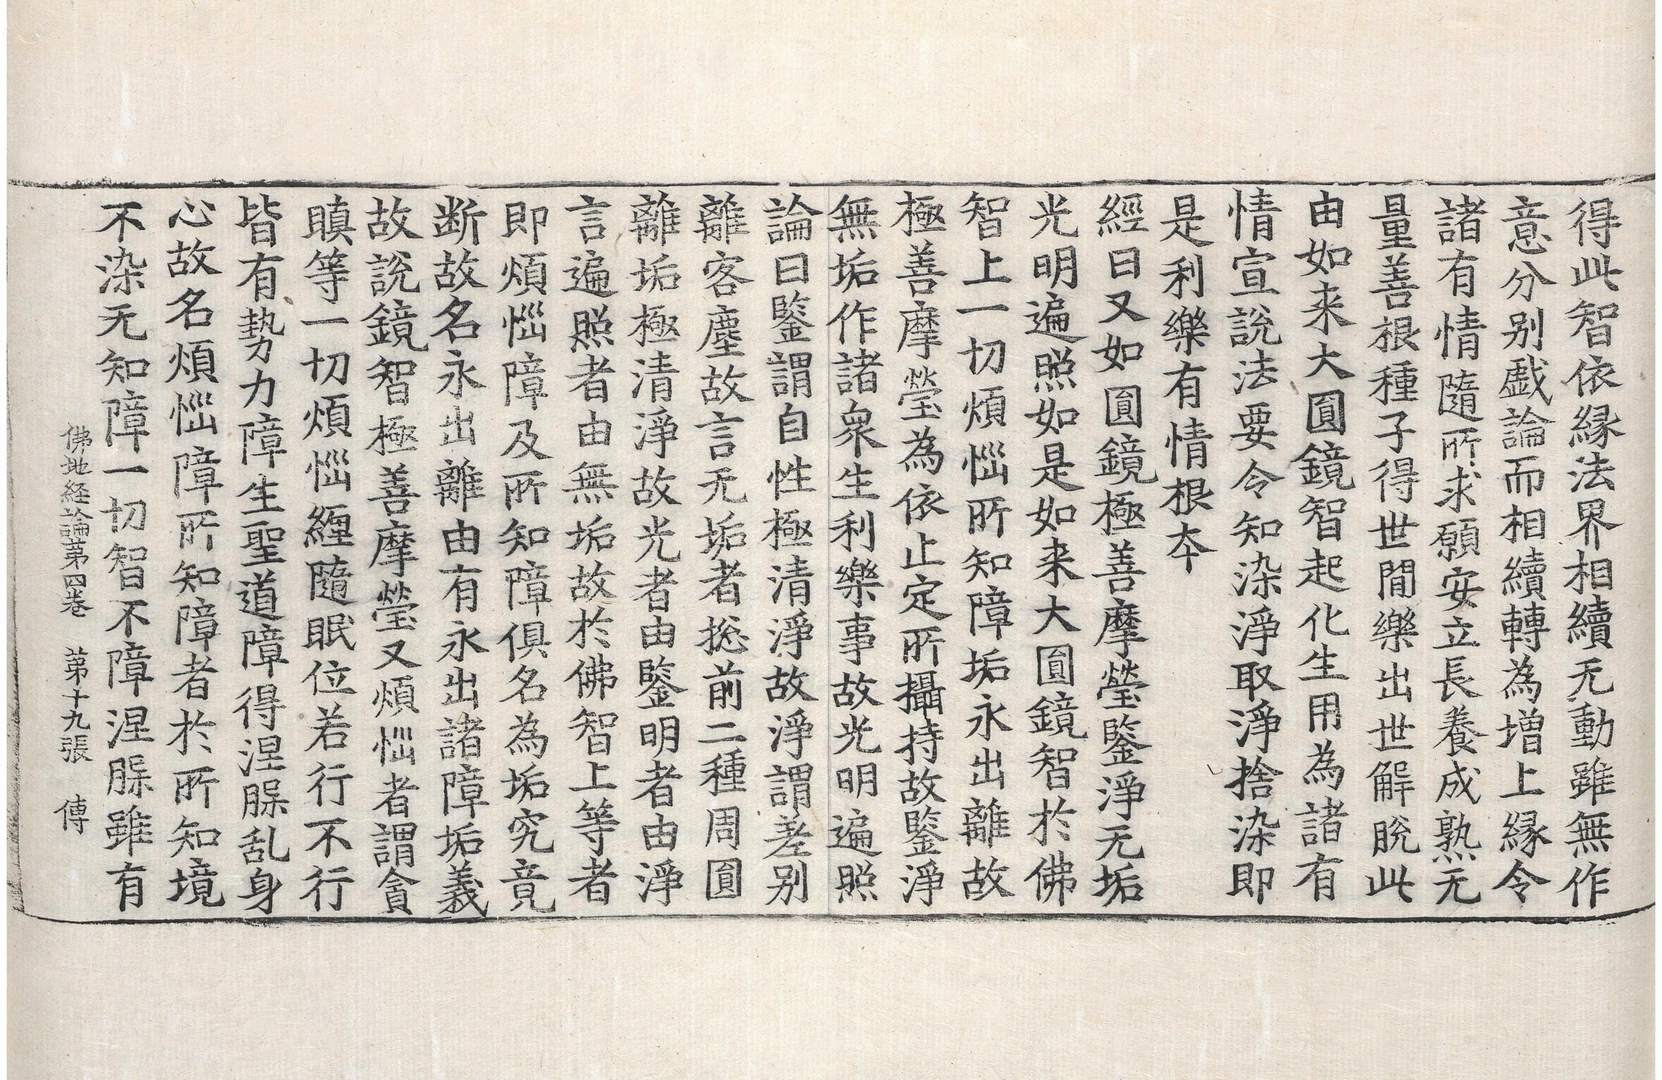 得此智依縁法界相續无動雖無作
意分别戲論而相續轉為増上縁令
諸有情隨所求願安立長養成熟无
量善根種子得世間樂出世解脫此
由如来大圎鏡智起化生用為諸有
情宣説法要令知染淨取淨捨染即
是利樂有情根夲
經曰又如圎鏡極善摩瑩鑒淨无垢
光明遍照如是如来大圎鏡智於佛
智上一切煩惱所知障垢永出離故
極善摩瑩為依止定所攝持故鑒淨
無垢作諸衆生利樂事故光明遍照
論曰鑒謂自性極清淨故淨謂差别
離客塵故言无垢者捴前二種周圎
離垢極清淨故光者由鑒明者由淨
言遍照者由無垢故於佛智上等者
即煩惱障及所知障俱名為垢究竟
断故名永出離由有永出諸障垢義
故説鏡智極善摩瑩又煩惱者謂貪
瞋等一切煩惱纏隨眠位若行不行
皆有勢力障生聖道障得涅槃乱身
心故名煩惱障所知障者於所知境
不染无知障一切智不障涅槃雖有
佛地経論第四卷 第十九張 傳